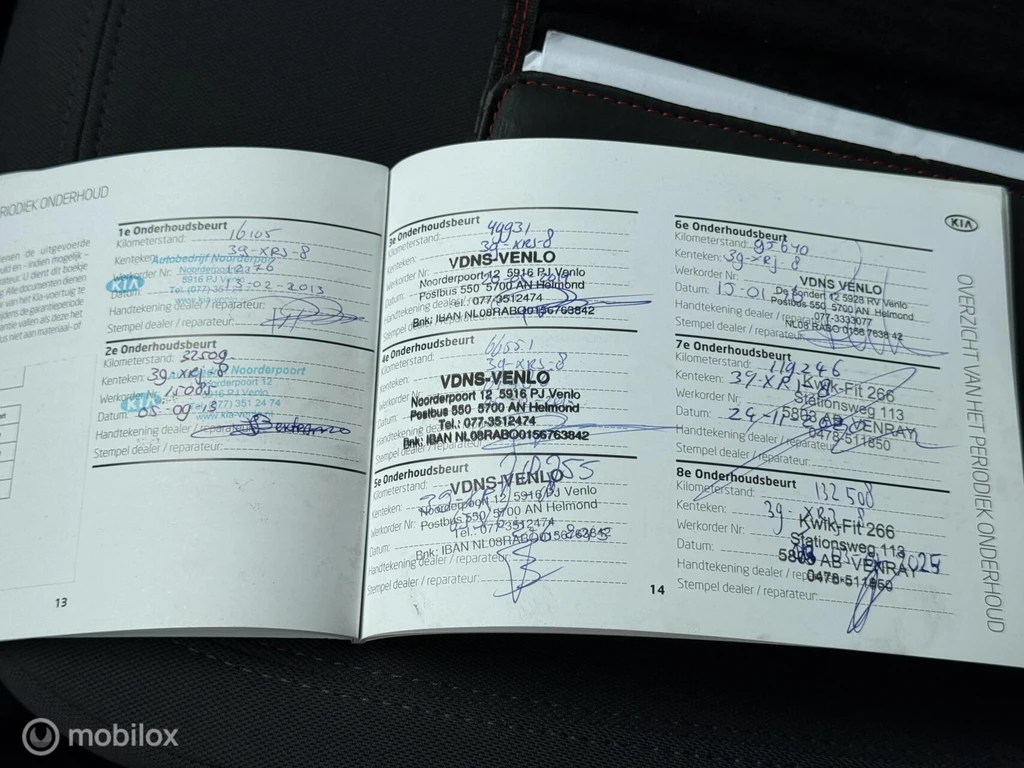 RIODIEK ONDERHOUD
enen de uitgevoerde
uld en - indien mogelijk -
ateur. U dient dit boekje
Alle documenten dienen
van het Kia-voertuig te
ijdens de garantieperiode
antie vallen als deze het
us niet aan materiaal- of
1e Onderhoudsbeurt
Kilometerstand: 16105
Kenteken: 39-XRJ-8
Autobedrijf Noorderpoort
Werkorder Nr: 12376
5916 PJ V
KIA
Datum: 13-02-2013
Tel. (077)
www.kia
Handtekening dealer / reparateur:
Stempel dealer / reparateur:
2e Onderhoudsbeurt
Kilometerstand: 32509
Kenteken: 39-XRJ-8
Noorderpoort
Noorderpoort 12
Werkorder 15085
5916 PJ Venlo
KIA
Datum: 05-09-13
(077) 351 24 74
www.kia-venlo.nl
Handtekening dealer / reparateur:
Stempel dealer / reparateur:
13
3e Onderhoudsbeurt
Kilometerstand: 49931
Kenteken: 39-XRS-8
VDNS-VENLO
Werkorder Nr:
Noorderpoort 12 5916 PJ Venlo
Datum:
Postbus 550 5700 AN Helmond
tel.: 077-3512474
Handtekening dealer
Bnk: IBAN NL08RABO0156763842
Stempel dealer / reparateur:
4e Onderhoudsbeurt
Kilometerstand: 66551
Kenteken: 39-XRS-8
VDNS-VENLO
Noorderpoort 12 5916 PJ Venlo
Postbus 550 5700 AN Helmond
Datum:
Tel.: 077-3512474
Handtekening
Bnk: IBAN NL08RABO0156763842
Stempel dealer / reparateur:
5e Onderhoudsbeurt
Kilometerstand:
VDNS-VENLO
Kenteken: 39-XRJ-8
Noorderpoort 12 5916 PJ Venlo
Werkorder Nr:
Postbus 550 5700 AN Helmond
Tel.: 077-3512474
Datum:
Bnk: IBAN NL08RABO0156763842
Handtekening dealer / reparateur:
Stempel dealer / reparateur:
14
KIA
6e Onderhoudsbeurt
Kilometerstand: 95640
Kenteken: 39-XRJ-8
VDNS VENLO
Werkorder Nr:
De Sondert 12 5928 RV Venlo
Datum:
Postbus 550 5700 AN Helmond
077-3333077
Handtekening dealer / reparateur:
NL08 RABO 0156 7638 42
Stempel dealer / reparateur:
7e Onderhoudsbeurt
Kilometerstand: 119246
Kenteken: 39-XRJ-8
Kwik-Fit 266
Werkorder Nr:
Stationsweg 113
Datum:
5803 AB VENRAY
Handtekening dealer / reparateur:
0478-511650
Stempel dealer / reparateur:
8e Onderhoudsbeurt
Kilometerstand: 132508
Kenteken: 39-XRJ-8
Kwik-Fit 266
Werkorder Nr:
Stationsweg 113
Datum:
5803 AB VENRAY
Handtekening dealer / reparateur:
0478-511650
Stempel dealer / reparateur:
OVERZICHT VAN HET PERIODIEK ONDERHOUD
mobilox